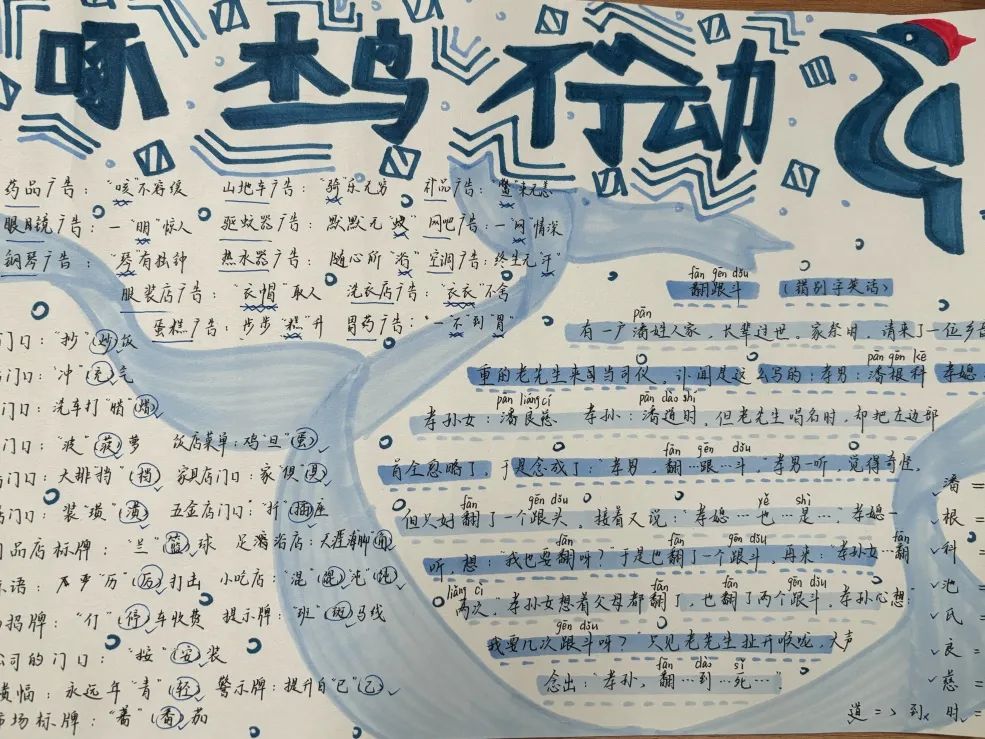 啄木鸟行动
药品广告："咳"不容缓 山地车广告："骑"乐无穷 礼品广告："鳖"来无恙
眼镜广告：一"明"惊人 驱蚊器广告：默默无"蚊" 网吧广告：一"网"情深
钢琴广告："琴"有独钟 热水器广告：随心所"浴" 空调广告：终生无"汗"
服装店广告："衣帽"取人 洗衣店广告："衣衣"不舍
蛋糕广告：步步"糕"升 胃药广告："一不"到"胃"
门口："抄"(炒)饭
门口："冲"(充)气
门口：洗车打"腊"(蜡)
门口："波"(菠)萝 饭店菜单：鸡"旦"(蛋)
门口：大排挡"(档) 家具店门口：家"俱"(具)
门口：装"璜"(潢) 五金店门口："扦"(插)座
品店标牌："兰"(篮)球 足浴店：天涯海脚(角)
语：严严"历"(厉)打击 小吃店："混"(馄)沌"(饨)
招牌："仃"(停)车收费 提示牌："班"(斑)马线
公司的门口："按"(安)装
横幅：永远年"青"(轻) 警示牌：提升自"已"(己)
市场标牌："蕃"(番)茄
fān gēn dǒu
翻跟斗 (错别字笑话)
pān
有一户潘姓人家，长辈过世。家祭时，请来了一位乡音
pān gēn kē
重的老先生来司当司仪。讣闻是这么写的：孝男：潘根科 孝媳
pān liáng cí pān dào shí
孝孙女：潘良慈 孝孙：潘道时，但老先生唱名时，却把左边部
fān gēn dǒu
首全忽略了，于是念成了："孝男，翻…跟…斗"，孝男一听，觉得奇怪，
fān gēn dǒu yě shì
但只好翻了一个跟头，接着又说："孝媳…也…是…"，孝媳一
fān fān gēn dǒu fān
听，想："我也要翻呀？"于是也翻了一个跟斗，再来：孝孙女…翻
liǎng cì fān fān gēn dǒu
两次，"孝孙女想着父母都翻了，也翻了两个跟斗，孝孙心想："
gēn dǒu
我要几次跟斗呀？"只见老先生扯开喉咙，大声
fān dào sǐ
念出："孝孙，翻…到…死…"
潘＝
根＝
科＝
池＝
氏＝
良＝
慈＝
道＝＞到 时＝